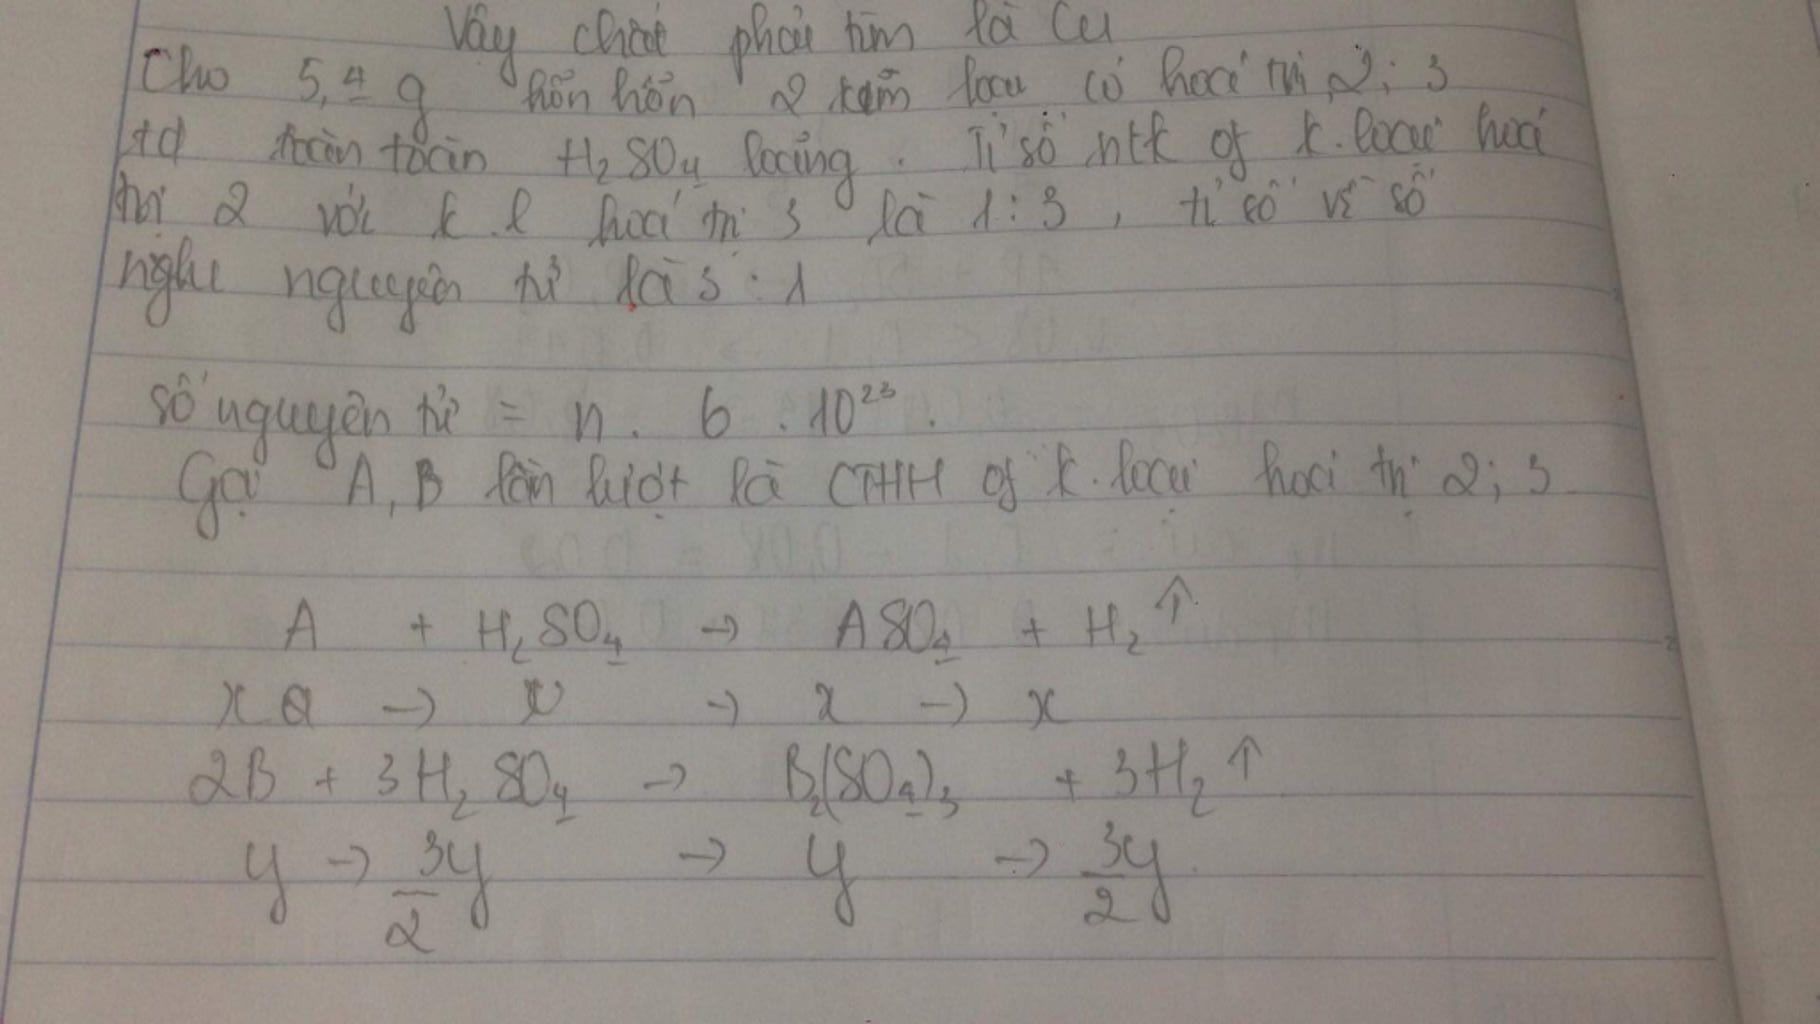 Vậy chất phải tìm là Cu
Cho 5,4 g hỗn hỗn 2 kim loại có hoá trị 2; 3
td toàn toàn H₂SO₄ loãng. Tỉ số ntk of k.loại hoá
trị 2 với k.l hoá trị 3 là 1:3, tỉ số về số
nghu nguyên tử là 3:1
số nguyên tử = n. 6 .10²³.
Gọi A, B lần lượt là CTHH of k.loại hoá trị 2; 3
A + H₂SO₄ → ASO₄ + H₂↑
x → x → x → x
2B + 3H₂SO₄ → B₂(SO₄)₃ + 3H₂↑
y → 3y/2 → y → 3y/2